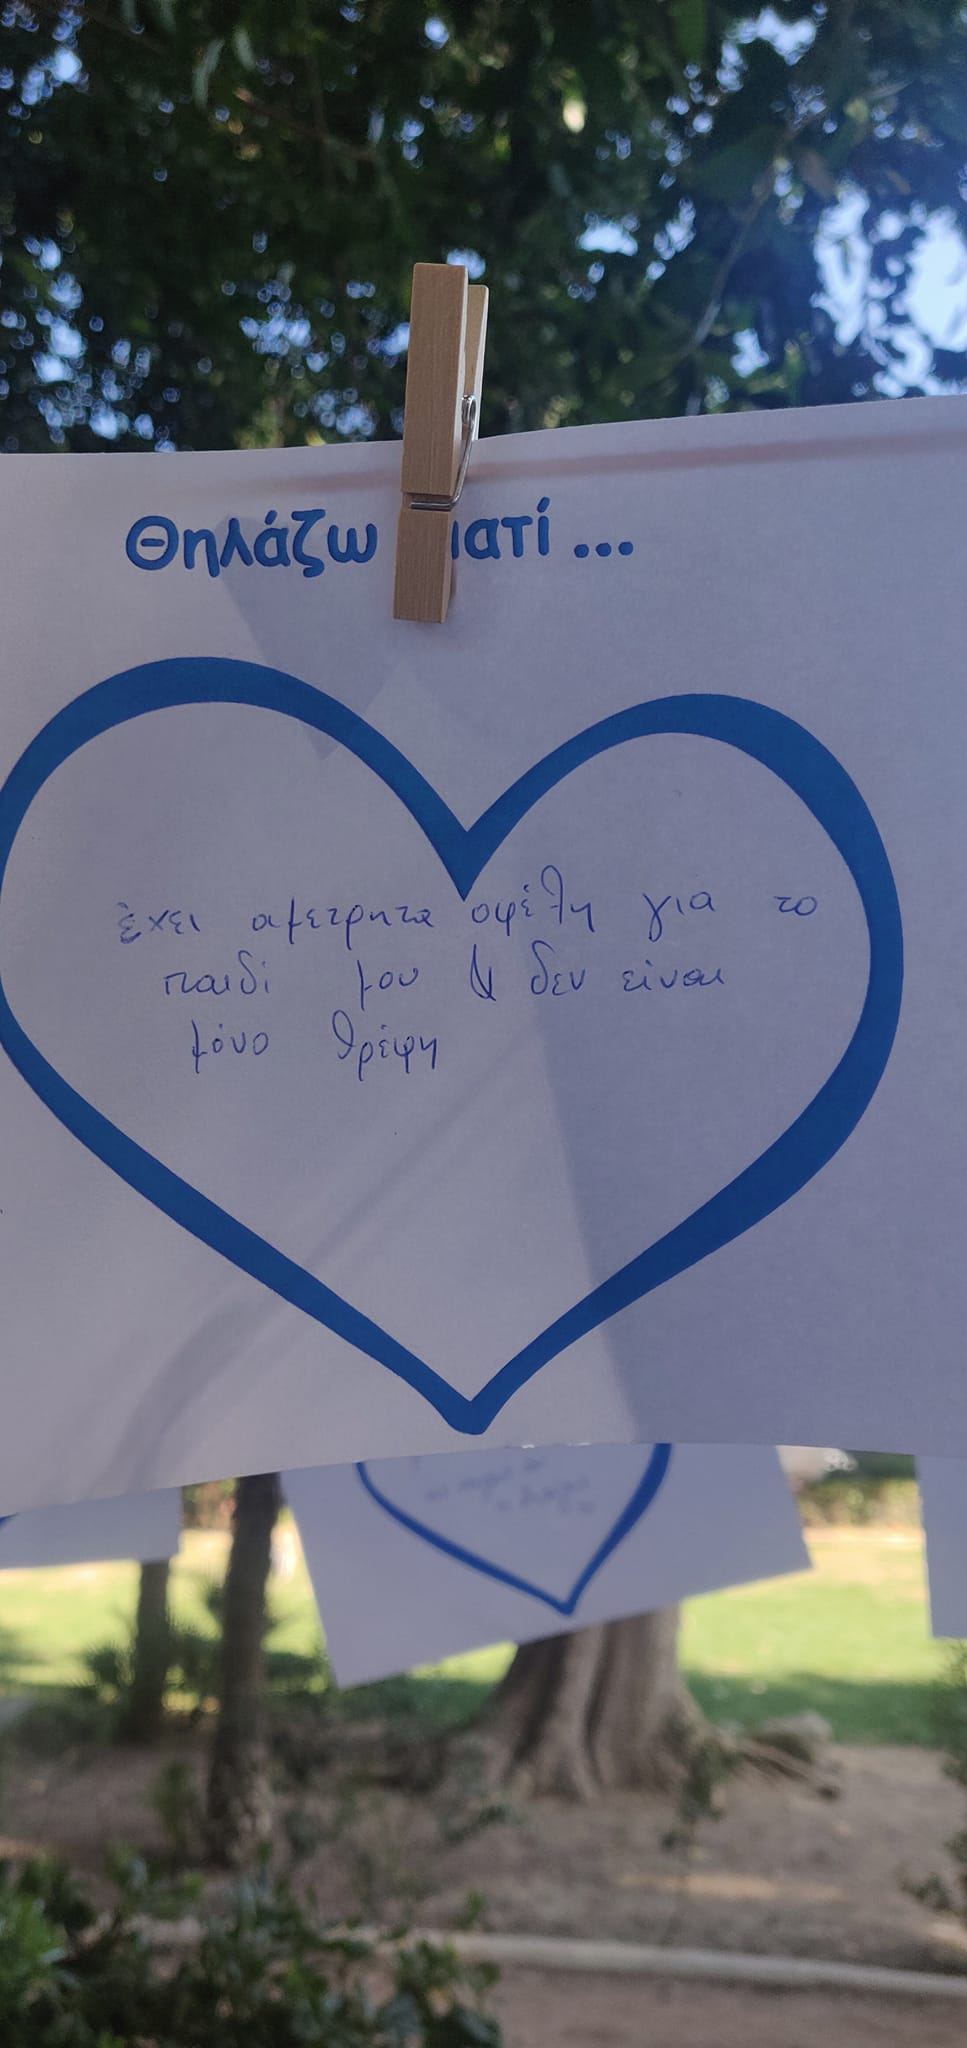 Θηλάζω γιατί ...
έχει αμετρητα οφέλη για το
παιδί μου & δεν είναι
μόνο θρέψη